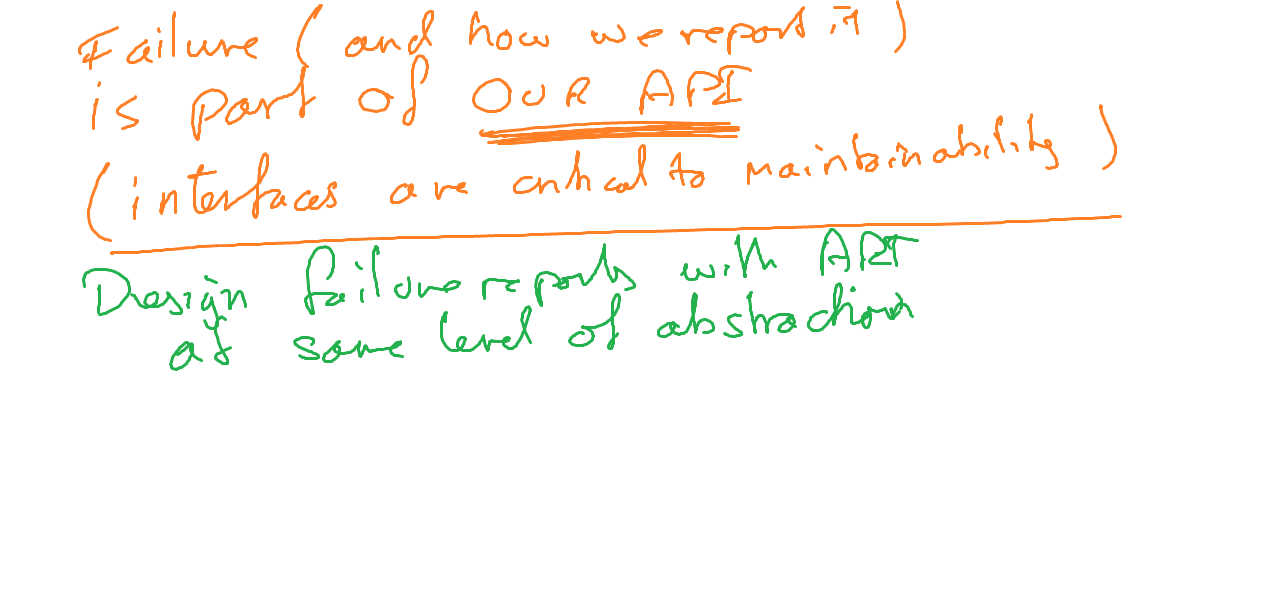 Failure (and how we report it)
is part of OUR API
(interfaces are critical to maintainability)
Design failure reports with API
at same level of abstraction